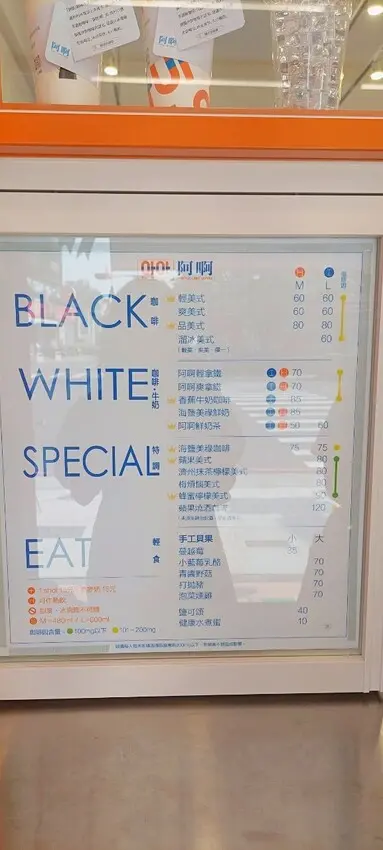 阿啊
아아 阿啊
H I
M L
BLACK 咖啡
輕美式 60 60
爽美式 60 60
品美式 80 80
溜冰美式 60
WHITE 咖啡・牛奶
阿啊輕拿鐵 I H 70
阿啊爽拿鐵 I H 70
香蕉牛奶咖啡 85
海鹽美祿鮮奶 85
阿啊鮮奶茶 50 60
SPECIAL 特調
海鹽美祿咖啡 75 75
蘋果美式 80
濟州抹茶檸檬美式 80
梅煩惱美式 80
蜂蜜檸檬美式
120
EAT 輕食
手工貝果 小 大
蔓越莓 25
小藍莓乳酪 70
青醬野菇 70
打拋豬 70
泡菜燒雞 70
鹽可頌 40
健康水煮蛋 10
100mg以下 101~200mg